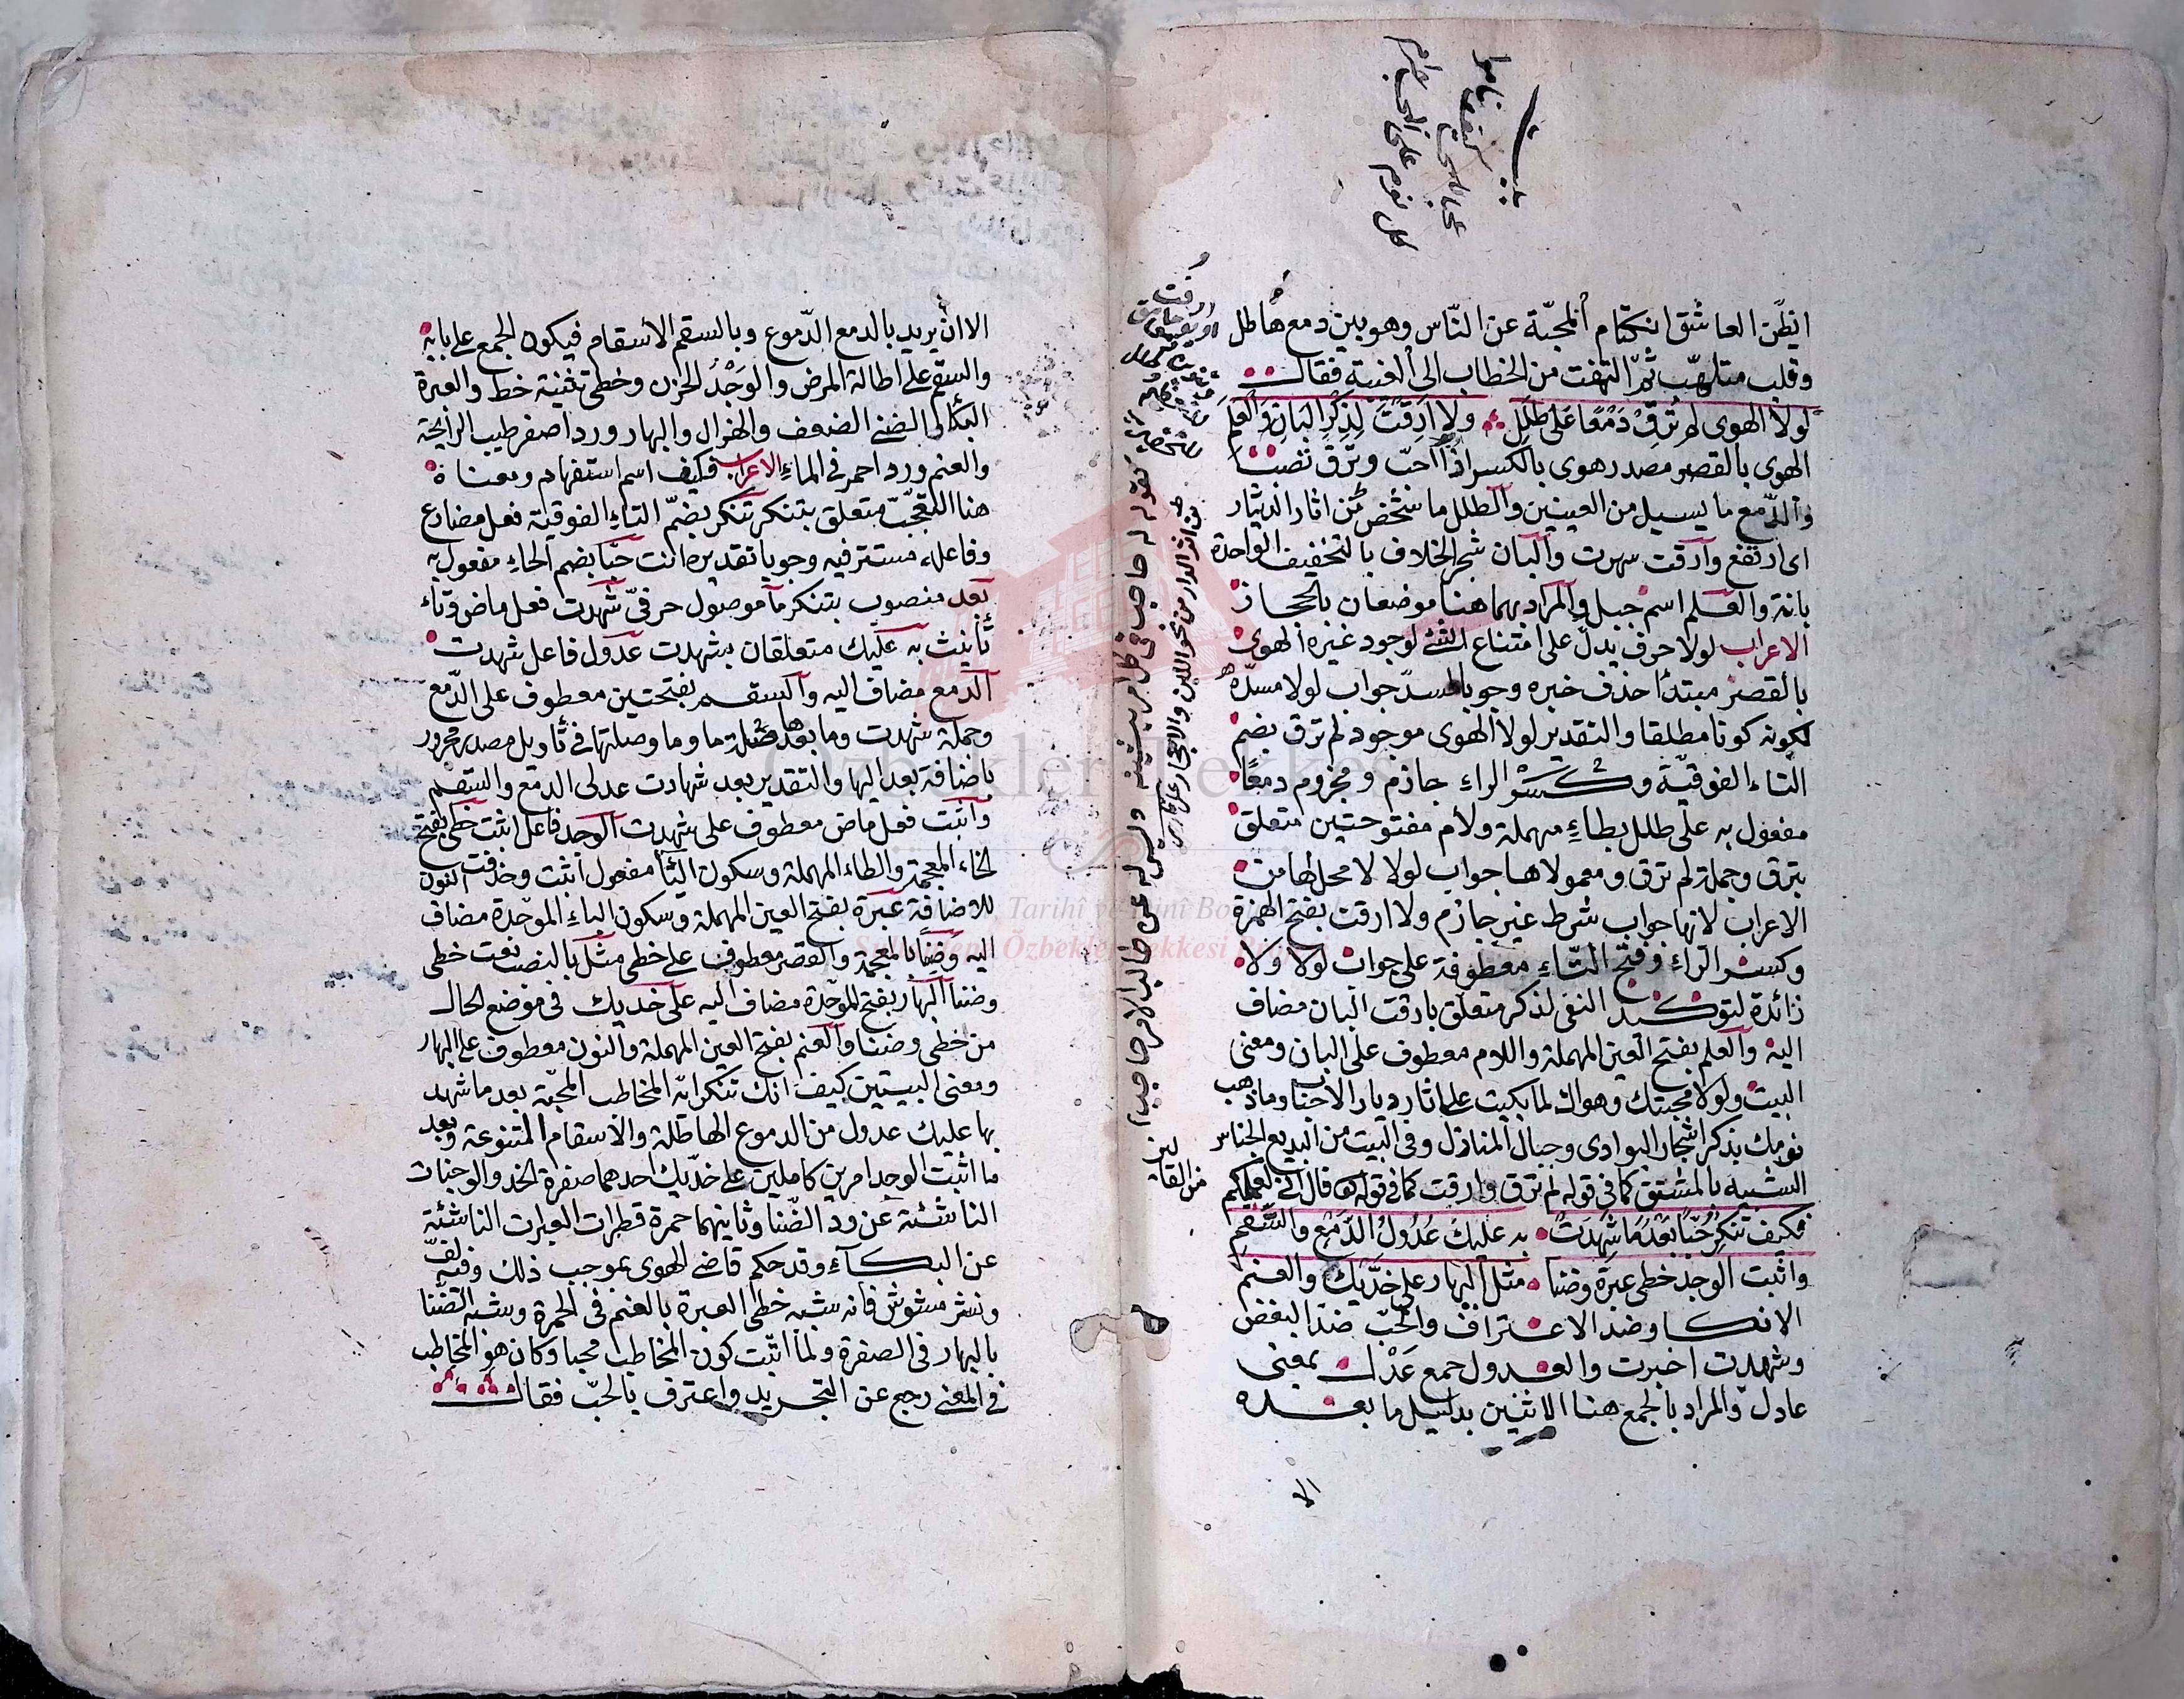 ايظن العاشق انكتام المحبّة عن النّاس وهو بين دمع هاطل
وقلب متلهّب ثمّ التفت من الخطاب الى الغيبة فقال
لولا الهوى لم تُرِقْ دَمْعًا عَلى طَلَلِ ولا ارقتَ لِذِكْرِ البَانِ وَالعَلَمِ
الهوى بالقصر مصدر هوى بالكسر اذا احبّ وترق تصبّ
والدّمع ما يسيل من العينين والطلل ما شخص من اثار الديار
اى ارتفع وأرقت سهرت والبان شجر الخلاف بالتخفيف الواحدة
بانة والعلم اسم جبل والمراد بهما هنا موضعان بالحجاز
الاعراب لولا حرف يدلّ على امتناع الشئ لوجود غيره الهوى
بالقصر مبتدأ حذف خبره وجوبا لسدّ جواب لولا مسدّه
لكونه كونا مطلقا والتقدير لولا الهوى موجود لم ترق بضم
التاء الفوقيّة وكسر الراء جازم ومجزوم دمعًا
مفعول به على طلل بطاء مهملة ولام مفتوحتين متعلق
بترق وجملة لم ترق ومعمولاها جواب لولا لا محل لها من
الاعراب لانها جواب شرط غير جازم ولا ارقت بفتح الهمزة
وكسر الراء وفتح التاء معطوفة على جواب لولا ولا
زائدة لتوكيد النفى لذكر متعلق بارقت البان مضاف
اليه والعلم بفتح العين المهملة واللام معطوف على البان ومعنى
البيت ولولا محبتك وهواك لما بكيت على اثار ديار الاحباب وما ذهب
نومك بذكر اشجار البوادى وجبال المنازل وفى البيت من البديع الجناس
الشبيه بالمشتق كما فى قوله لم ترق وارقت كما فى قوله قال انى لعملكم
فكيف تُنكِرُ حُبًّا بَعْدَمَا شَهِدَتْ به عليكَ عُدُولُ الدَّمْعِ والسَّقَمِ
واثبت الوجد خطى عبرة وضنا مثل البهار على خدّيك والعنم
الانكار ضد الاعتراف والحبّ ضدّ البغض
وشهدت اخبرت والعدول جمع عَدْل بمعنى
عادل والمراد بالجمع هنا الاثنين بدليل ما بعده
الا
كقوله له حاجب فى كل امر يشينه وليس له عن طالب الامر حاجب
من اثر الدار من نحو اللبن والاحجار على قارى
الا ان يريد بالدمع الدّموع وبالسقم الأسقام فيكون الجمع على بابه
والسقم على اطالة المرض والوَجْدُ الحزن وخطى تثنية خط والعبرة
البكاء والضنى الضعف والهزال والبهار ورد اصفر طيب الرائحة
والعنم ورد احمر فى الماء الاعراب فكيف اسم استفهام ومعناه
هنا التعجّب متعلق بتنكر تنكر بضمّ التاء الفوقية فعل مضارع
وفاعله مستتر فيه وجوبا تقديره انت حبّا بضم الحاء مفعول به
بعد منصوب بتنكر ما موصول حرفىّ شهدت فعل ماض وتاء
تأنيث به عليك متعلقان بشهدت عدول فاعل شهدت
الدمع مضاف اليه والسقم بفتحتين معطوف على الدّمع
وجملة شهدت وما بعدها صلة ما وما وصلتها فى تأويل مصدر مجرور
باضافة بعد اليها والتقدير بعد شهادت عدلى الدمع والسقم
واثبت فعل ماض معطوف على شهدت الوجد فاعل اثبت خطى بفتح
الخاء المعجمة والطاء المهملة وسكون الياء مفعول أثبت وحذفت النون
للاضافة عبرة بفتح العين المهملة وسكون الباء الموحدة مضاف
اليه وضنا بالمعجمة والقصر معطوف على خطى مثل بالنصب نعت خطى
وضنا البهار بفتح الموحّدة مضاف اليه على خديك فى موضع الحال
من خطى وضنا والعنم بفتح العين المهملة والنون معطوف على البهار
ومعنى البيتين كيف انك تنكر ايّها المخاطب المحبّة بعد ما شهد
بها عليك عدول من الدموع الهاطلة والأسقام المتنوعة وبعد
ما اثبت الوجد امرين كاملين على خدّيك احدهما صفرة الخد والوجنات
الناشئة عن ود الضّنا وثانيهما حمرة قطرات العبرات الناشئة
عن البكاء وقد حكم قاضى الهوى بموجب ذلك وفيه لفّ
ونشر مشوش فانه شبه خطى العبرة بالعنم فى الحمرة وشبه الضّنا
بالبهار فى الصفرة ولما اثبت كون المخاطب محبا وكان هو المخاطب
فى المعنى رجع عن التجريد واعترف بالحبّ فقال